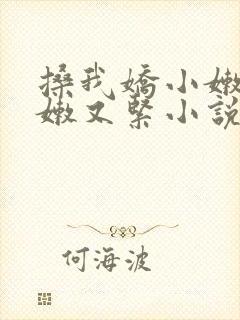 搡我嬌小嫩
嫩又緊小説
何海波